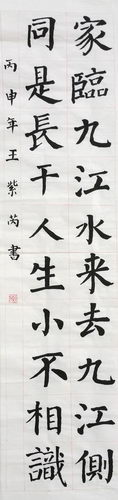 家臨九江水来去九江側
同是長干人生小不相識
丙申年王紫芮書